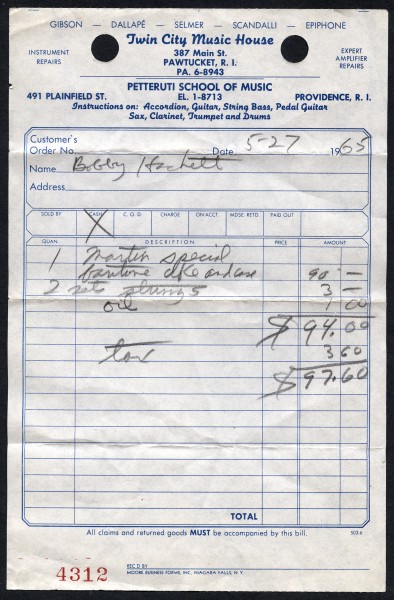 GIBSON — DALLAPÉ — SELMER — SCANDALLI — EPIPHONE
Twin City Music House
INSTRUMENT REPAIRS
387 Main St.
PAWTUCKET, R. I.
PA. 6-8943
EXPERT AMPLIFIER REPAIRS
PETTERUTI SCHOOL OF MUSIC
491 PLAINFIELD ST. EL. 1-8713 PROVIDENCE, R. I.
Instructions on: Accordion, Guitar, String Bass, Pedal Guitar
Sax, Clarinet, Trumpet and Drums
Customer's
Order No. Date 5-27 1965
Name Bobby Hackett
Address
SOLD BY CASH C.O.D. CHARGE ON ACCT. MDSE. RETD. PAID OUT
X
QUAN. DESCRIPTION PRICE AMOUNT
1 Martin special
baritone uke and case 90 —
2 sets strings 3 —
oil 1 00
$ 94.00
tax 3 60
$ 97.60
TOTAL
All claims and returned goods MUST be accompanied by this bill.
4312
REC'D BY
MOORE BUSINESS FORMS, INC., NIAGARA FALLS, N. Y.